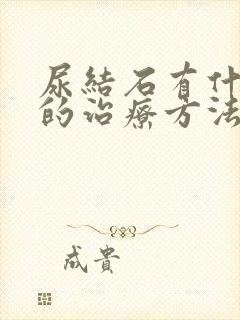 尿結石有什
的治療方法
成貴